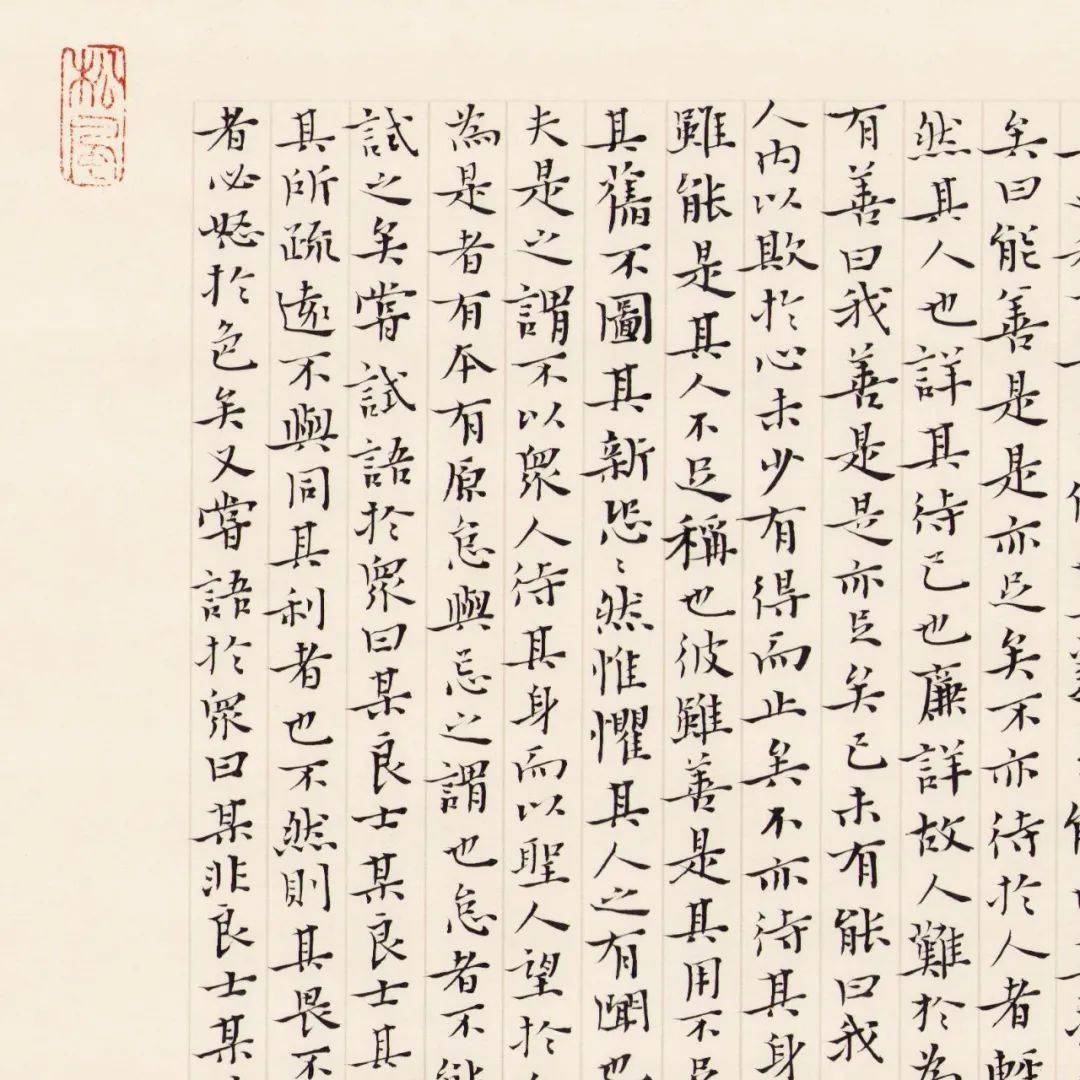 矣曰能善是是亦足矣不亦待於人者輕
然其人也詳其待己也廉詳故人難於為
有善曰我善是是亦足矣己未有能曰我
人内以欺於心未少有得而止矣不亦待其身
雖能是其人不足稱也彼雖善是其用不足
其舊不圖其新恐〻然惟懼其人之有聞也
夫是之謂不以衆人待其身而以聖人望於
為是者有本有原怠與忌之謂也怠者不能
試之矣嘗試語於衆曰某良士某良士其
其所疏遠不與同其利者也不然則其畏不
者必怒於色矣又嘗語於衆曰某非良士某
松風